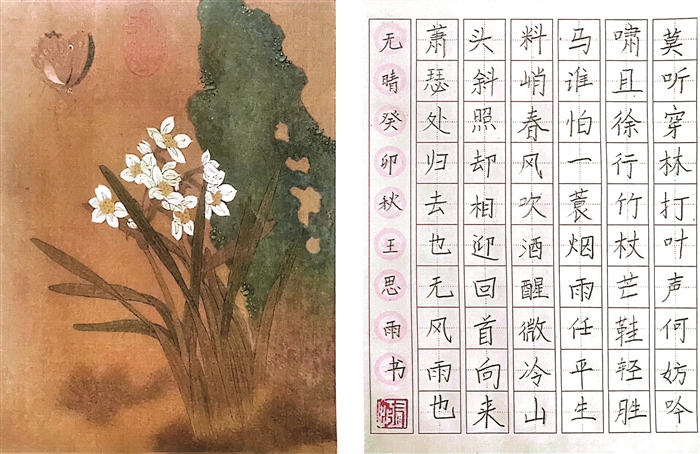 莫听穿林打叶声何妨吟
啸且徐行竹杖芒鞋轻胜
马谁怕一蓑烟雨任平生
料峭春风吹酒醒微冷山
头斜照却相迎回首向来
萧瑟处归去也无风雨也
无晴癸卯秋王思雨书